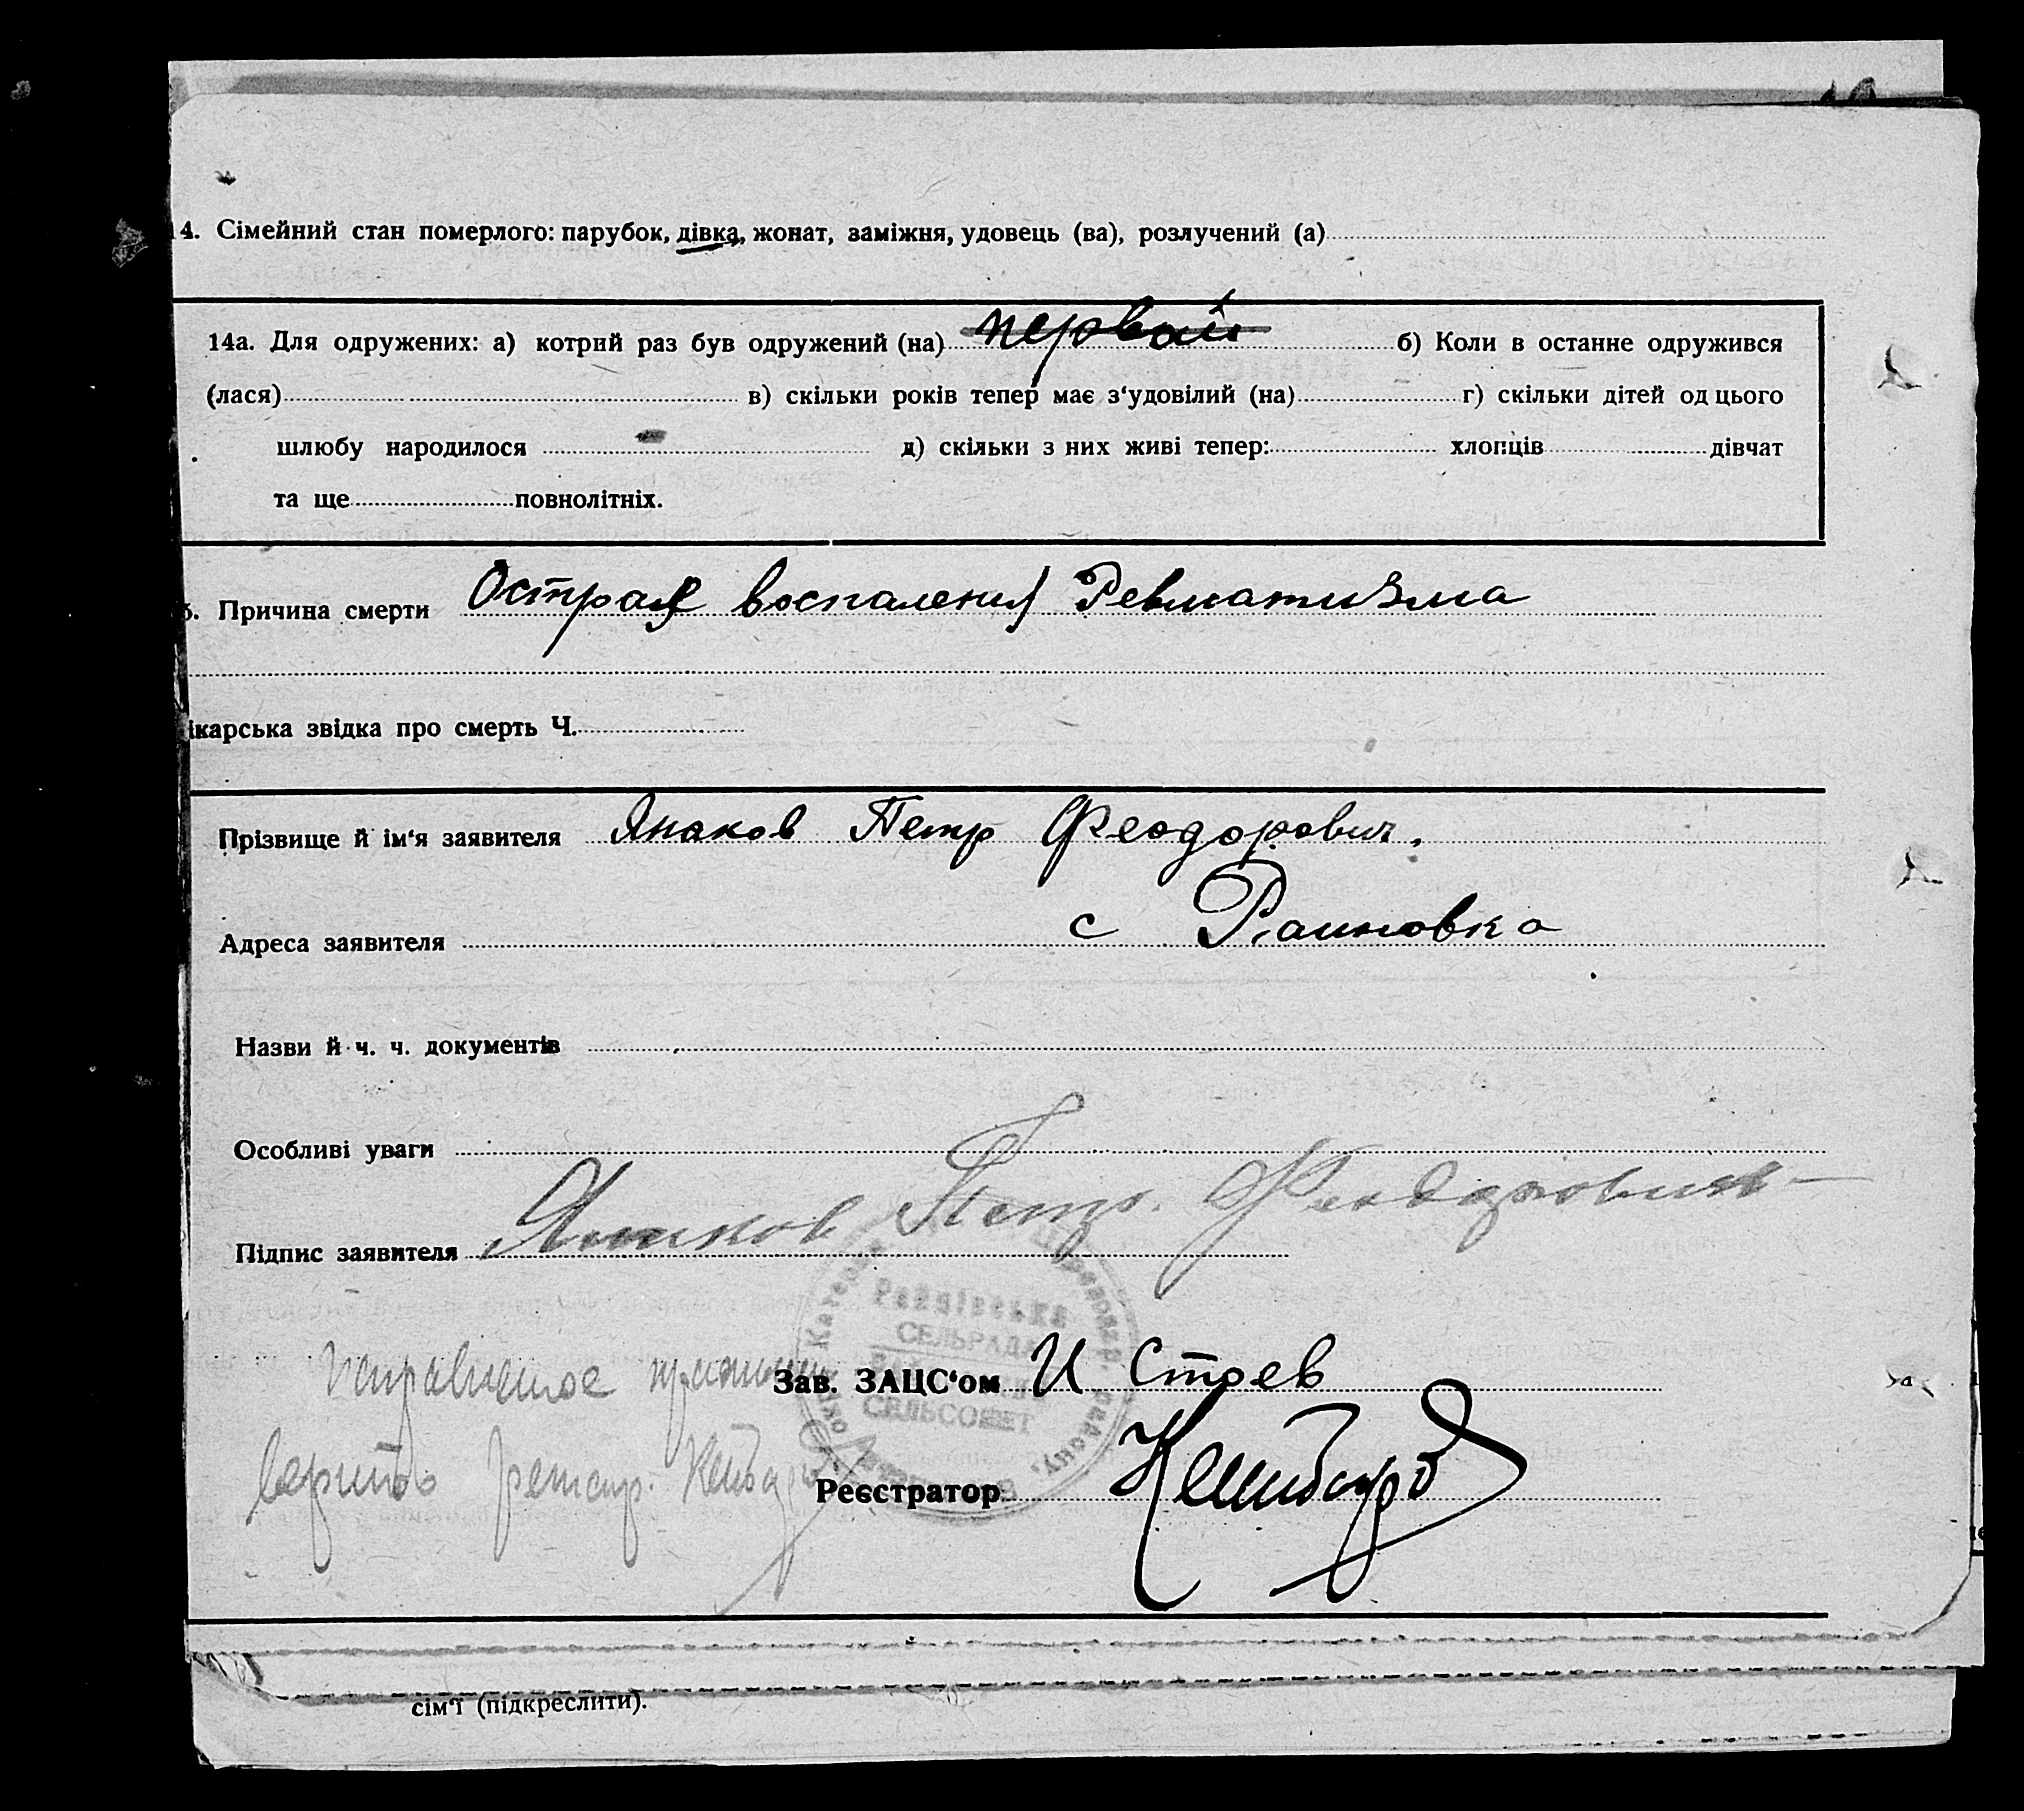 14. Сімейний стан померлого: парубок, дівка, жонат, заміжня, удовець (ва), розлучений (а)
14а. Для одружених: а) котрий раз був одружений (на) первый б) Коли в останне одружився
(лася) в) скільки років тепер має з‘удовілий (на) г) скільки дітей од цього
шлюбу народилося д) скільки з них живі тепер: хлопців дівчат
та ще повнолітніх.
Причина смерти Острая воспаления Ревматизма
ікарська звідка про смерть Ч.
Прізвище й ім‘я заявителя Янаков Петр Феодорович.
Адреса заявителя с Раиновка
Назви й ч. ч. документів
Особливі уваги
Янаков Петр. Феодорович
Підпис заявителя
СЕЛЬРАДА
СЕЛЬСОВЕТ
Исправленное
Зав. ЗАЦС‘ом И Стоев
верить
Реєстратор
сім‘ї (підкреслити).